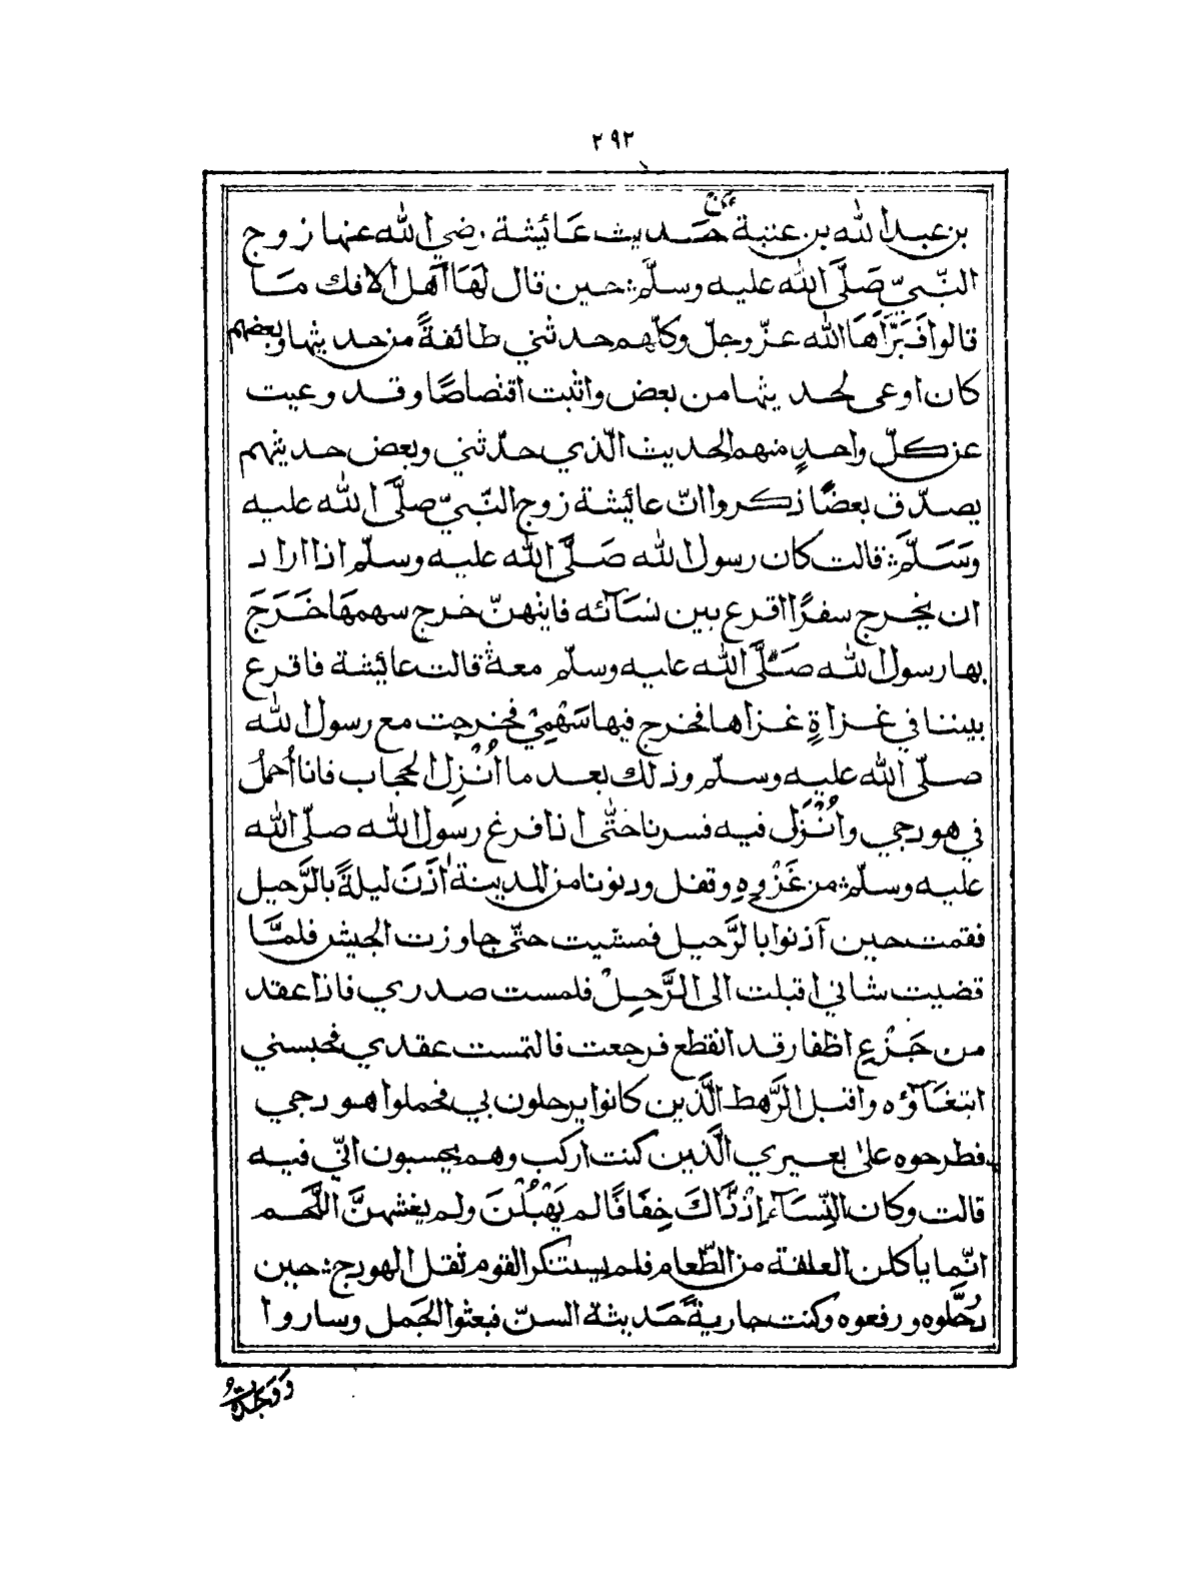 ٢٩٢
بن عبد الله بن عتبة عن حديث عائيشة رضي الله عنها زوج
النّبيّ صَلَّى الله عليه وسلَّم حين قال لهَا اَهل الافك مَا
قالوا فَبَرَّأَهَا الله عزّ وجلّ وكلّهم حدثني طائفةً من حديثها وبعضهم
كان اوعى لحديثها من بعض واثبت اقتصاصًا وقد وعيت
عن كلّ واحدٍ منهم الحديث الّذي حدّثني وبعض حديثهم
يصدّق بعضًا ذكروا انّ عائيشة زوج النّبيّ صلَّى الله عليه
وَسَلَّم قالت كان رسول الله صَلَّى الله عليه وسلّم اذا اراد
ان يخرج سفرًا اقرع بين نسَآئه فايتهنّ خرج سهمهَا خَرَجَ
بها رسول الله صَلَّى الله عليه وسلّم معهُ قالت عائيشة فاقرع
بيننا في غزاةٍ غزاها فخرج فيها سَهْمِيْ فخرجت مع رسول الله
صلّى الله عليه وسلّم وذلك بعد ما اُنْزِل الحجاب فانا اُحملُ
في هودجي واُنْزَل فيه فسرنا حتّٰى اذا فرغ رسول الله صلّى الله
عليه وسلّم من غَزْوِهِ وقفل ودنونا من المدينة اٰذَنَ ليلةً بالرَّحيل
فقمت حين آذنوا بالرَّحيل فمشيت حتّى جاوزت الجيش فلمَّا
قضيت شاني اقبلت الى الرَّحِلْ فلمست صدري فاذا عقد
من جَزْعِ اظفار قد انقطع فرجعت فالتمست عقدي فحبسني
ابتغَآؤه واقبل الرَّهط الَّذين كانوا يرحلون بي فحملوا هودجي
فطرحوه علىٰ بعيري الّذين كنت اركب وهم يحسبون انّي فيه
قالت وكان النِّسَآء إذْذَّاكَ خِفَافًا لم يَهْبُلْنَ ولم يغشهنَّ اللَّحم
انّما ياكلن العلقة من الطّعام فلم يستنكر القوم ثقل الهودج حين
رُحَّلوه ورفعوه وكنت جاريةً حَديثة السنّ فبعثوا الجَمل وساروا